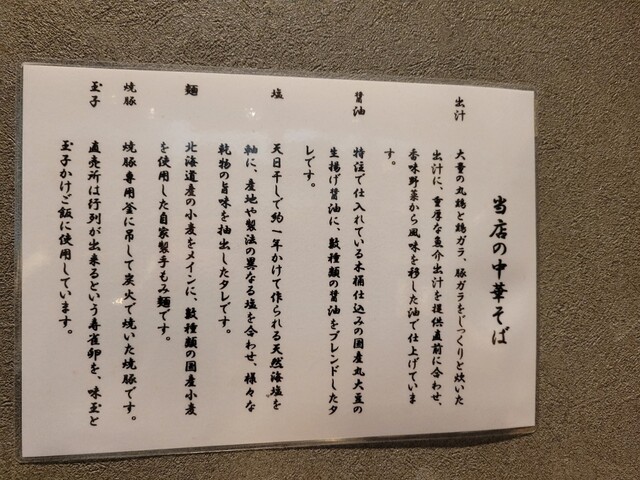 当店の中華そば
出汁
大量の丸鶏と鶏ガラ、豚ガラをじっくりと炊いた
出汁に、重厚な魚介出汁を提供直前に合わせ、
香味野菜から風味を移した油で仕上げていま
す。
醤油
特注で仕入れている木桶仕込みの国産丸大豆の
生揚げ醤油に、数種類の醤油をブレンドしたタ
レです。
塩
天日干しで約一年かけて作られる天然海塩を
軸に、産地や製法の異なる塩を合わせ、様々な
乾物の旨味を抽出したタレです。
麺
北海道産の小麦をメインに、数種類の国産小麦
を使用した自家製手もみ麺です。
焼豚
焼豚専用釜に吊して炭火で焼いた焼豚です。
玉子
直売所は行列が出来るという寿雀卵を、味玉と
玉子かけご飯に使用しています。